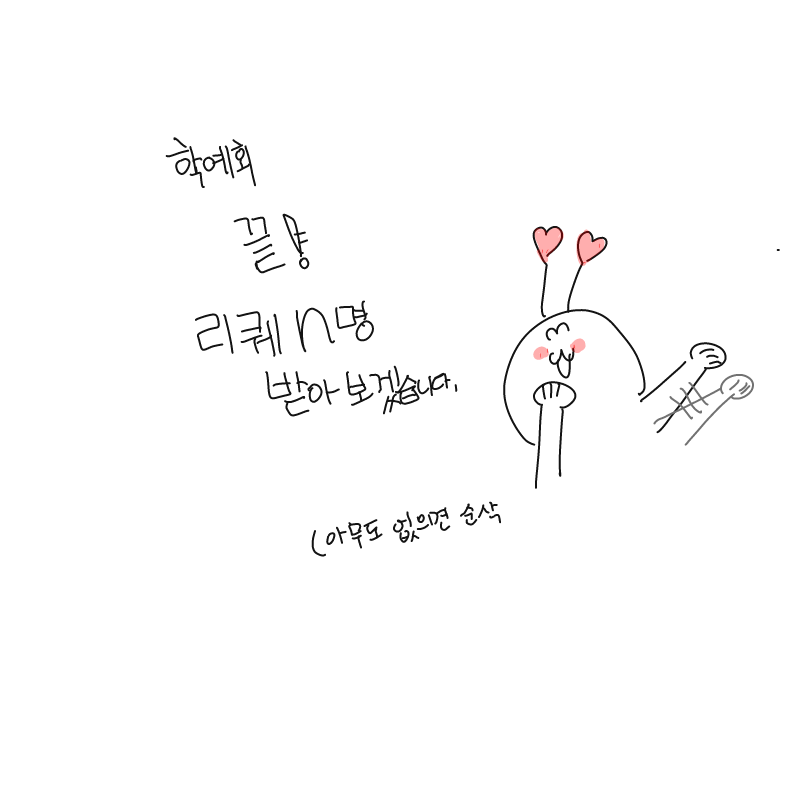 학예회
끝냥
리퀘 n명
받아 보겠습니다.
(아무도 없으면 순삭